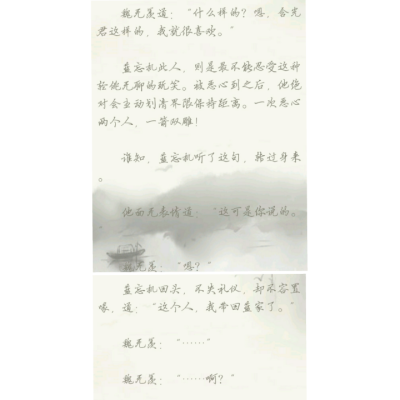 魏无羡道：“什么样的？嗯，含光
君这样的，我就很喜欢。”
蓝忘机此人，则是最不能忍受这种
轻佻无聊的玩笑。被恶心到之后，他绝
对会主动划清界限保持距离。一次恶心
两个人，一箭双雕！
谁知，蓝忘机听了这句，转过身来
。
他面无表情道：“这可是你说的。
魏无羡：“嗯？”
蓝忘机回头，不失礼仪，却不容置
喙，道：“这个人，我带回蓝家了。”
魏无羡：“……”
魏无羡：“……啊？”